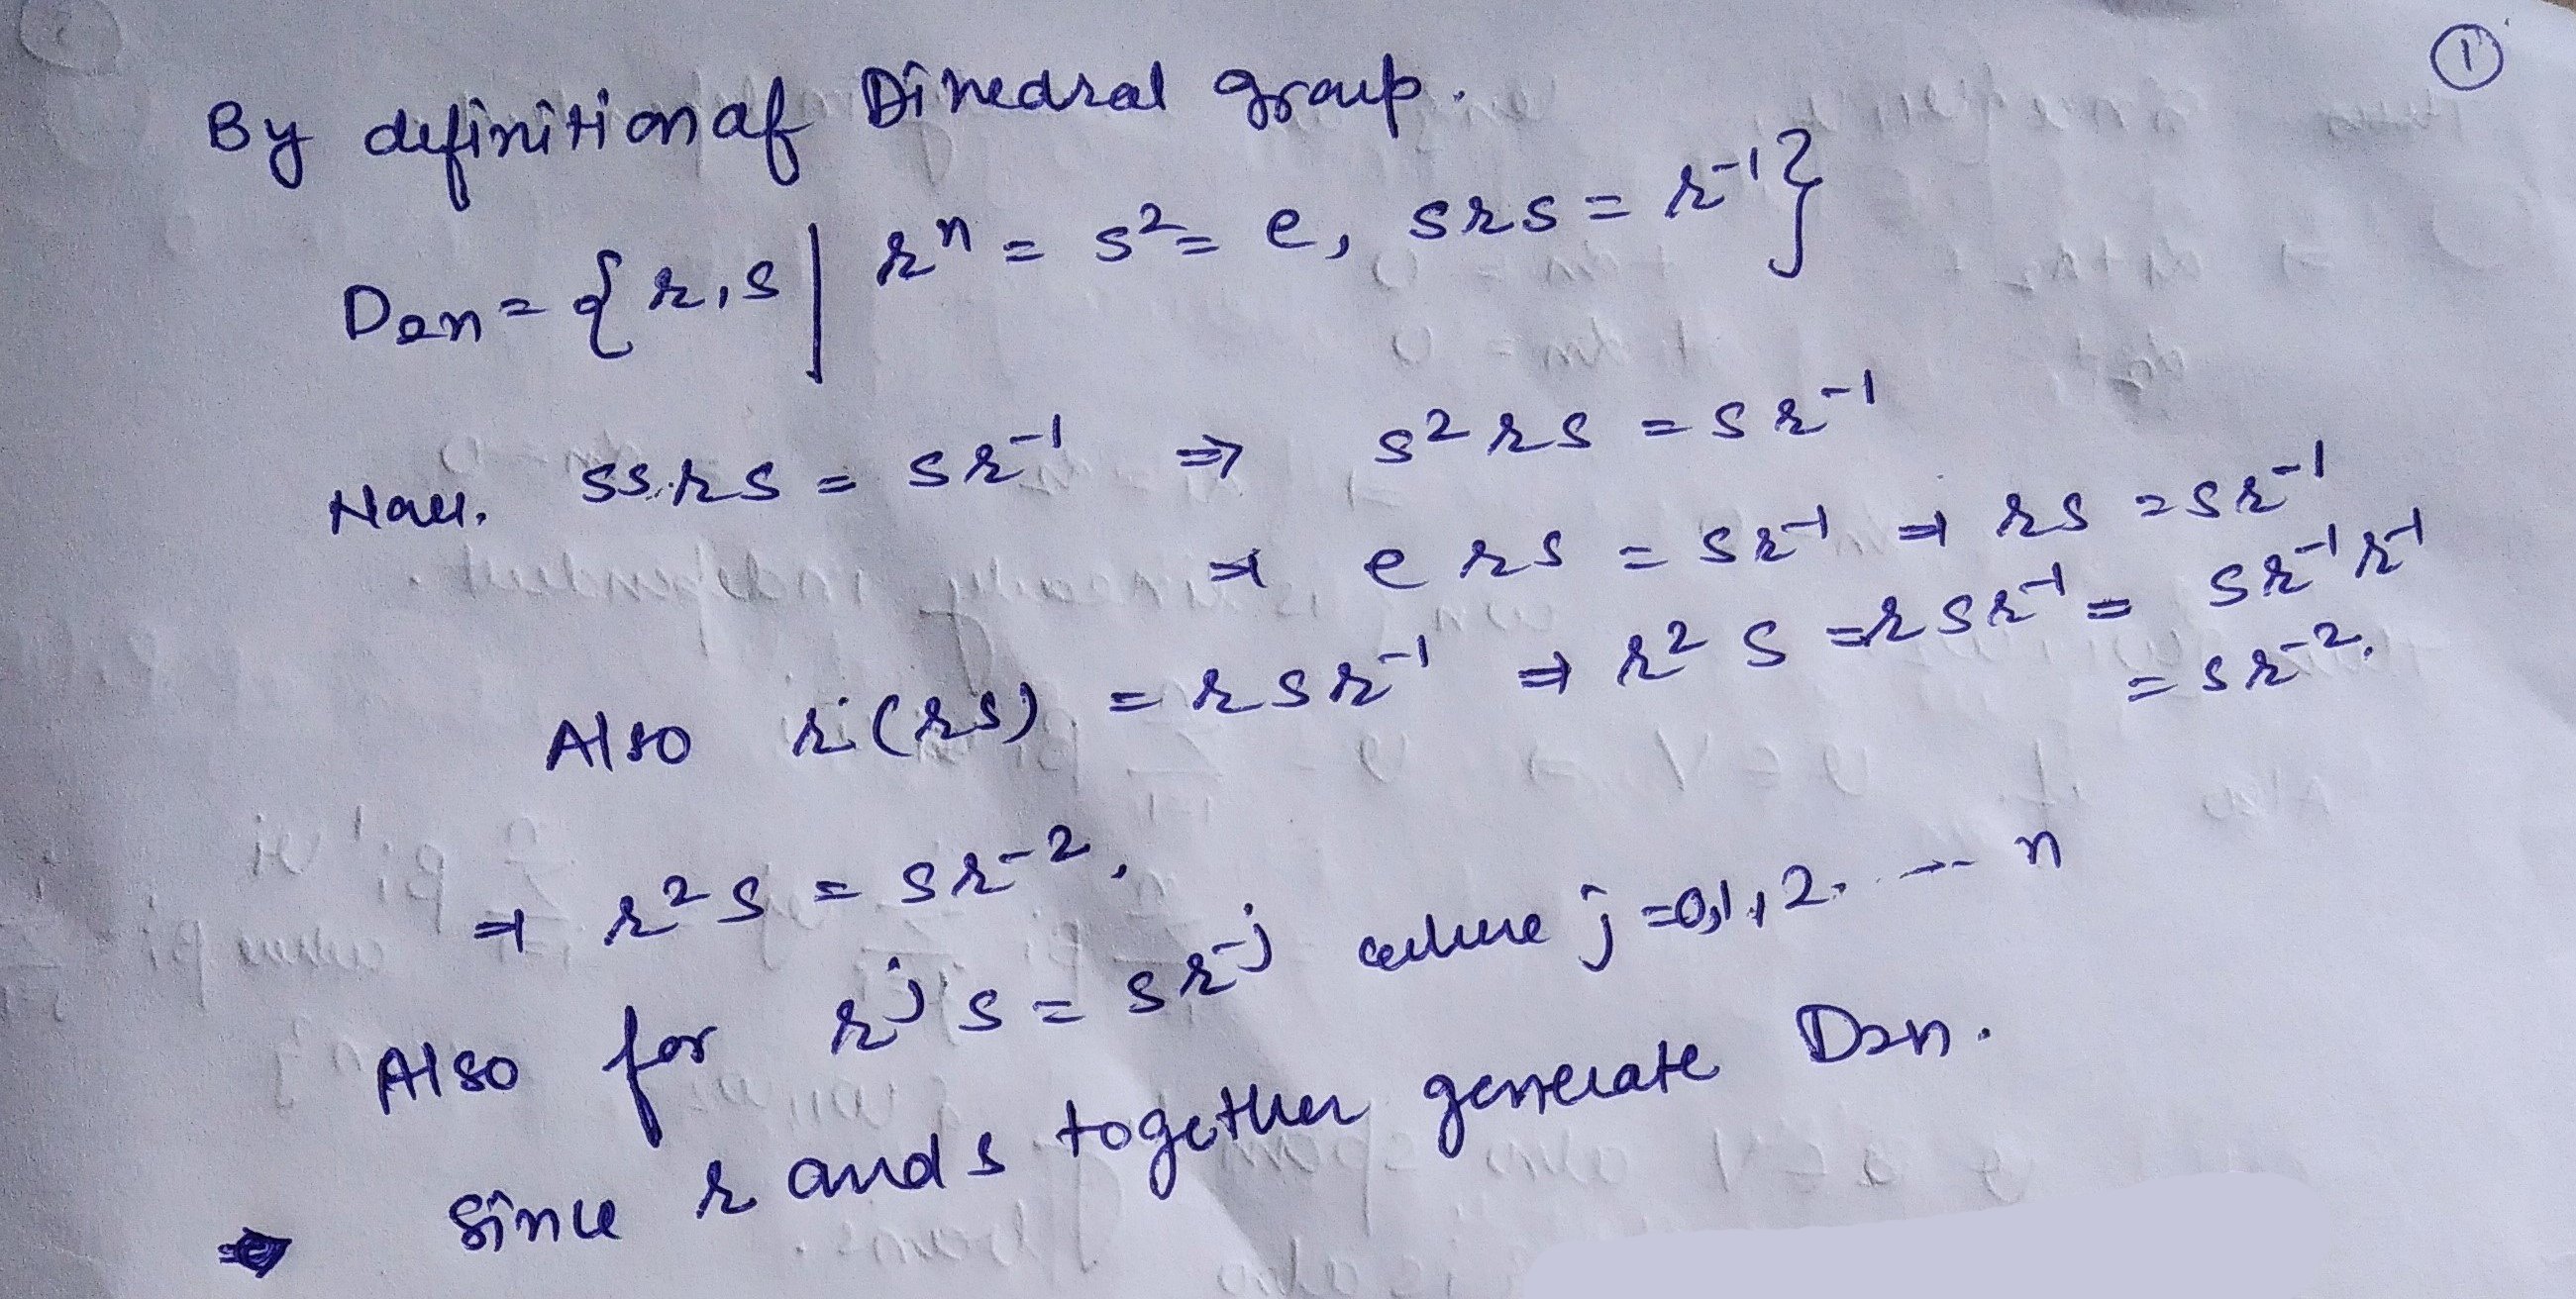 ①
By definition of Dihedral group.
D₂ₙ = { r, s | rⁿ = s² = e, srs = r⁻¹ }
Now. ssrs = sr⁻¹ ⇒ s²rs = sr⁻¹
⇒ ers = sr⁻¹ ⇒ rs = sr⁻¹
Also r(rs) = rsr⁻¹ ⇒ r²s = rsr⁻¹ = sr⁻¹r⁻¹
= sr⁻².
⇒ r²s = sr⁻².
Also for rʲs = sr⁻ʲ where j = 0,1,2. --- n
Since r and s together generate D₂ₙ.